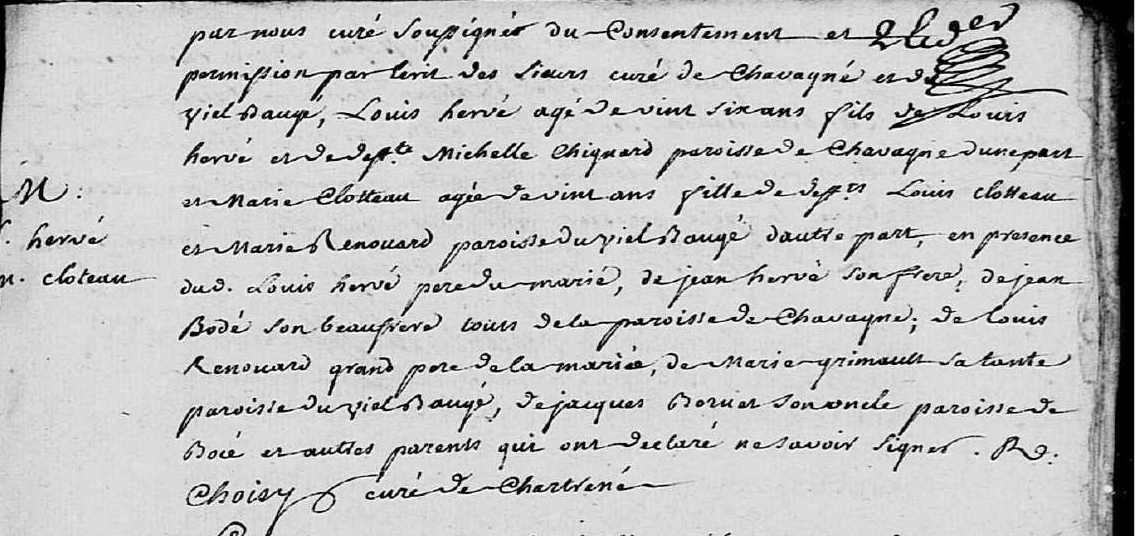 par nous curé soussignés du Consentement et
permission par Ecrit des sieurs curé de Chavagné et de
viel Baugé, Louis hervé agé de vint six ans fils de Louis
hervé et de deffte Michelle Chignard paroisse de Chavagne dune part
M:
et Marie Clotteau agée de vint ans fille de deffts Louis clotteau
hervé
et Marie Renouard paroisse du viel Baugé dautre part, en presence
m. cloteau
dud. Louis hervé pere du marié, de jean hervé son frere, de jean
Bodé son beaufrere tous de la paroisse de Chavagne; de louis
Renouard grand pere de la mariée, de Marie grimault sa tante
paroisse du viel Baugé, de jacques Boruet son oncle paroisse de
Bocé et autres parents qui ont declaré ne savoir signer. R.
Choisy curé de Chartrené